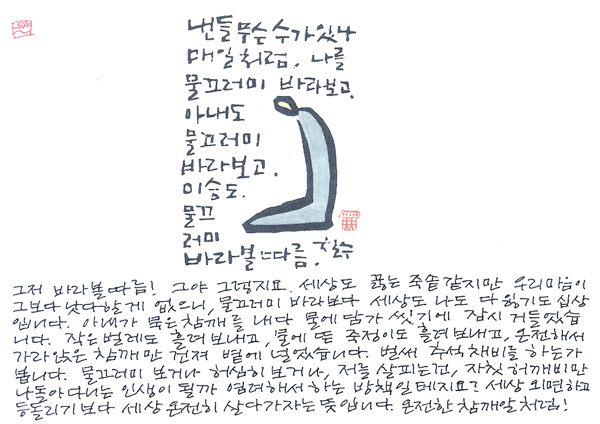 낸들 무슨 수가 있나
매일처럼, 나를
물끄러미 바라보고.
아내도
물끄러미
바라보고.
이승도.
물끄
러미
바라볼 따름. 철수
그저 바라볼 따름! 그야 그렇지요. 세상도 끓는 죽솥 같지만 우리 마음이
그보다 낫다 할 게 없으니, 물끄러미 바라보다 세상도 나도 다 잃기도 십상
입니다. 아내가 묵은 참깨를 내다 물에 담가 씻기에 잠시 거들었습
니다. 작은 벌레도 흘려보내고, 물에 뜬 죽정이도 흘려보내고, 온전해서
가라앉은 참깨만 건져 볕에 널었습니다. 벌써 추석 채비를 하는가
봅니다. 물끄러미 보거나 허심히 보거나, 저를 살피는건, 자칫 허깨비만
나돌아다니는 인생이 될까 염려해서 하는 방책일 테지요? 세상 외면하고
등돌리기보다 세상 온전히 살다 가자는 뜻입니다. 온전한 참깨알처럼!